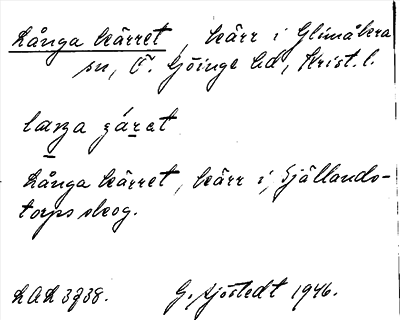 Långa kärret, kärr i Glimåkra
sn, Ö. Göinge hd, Krist. l.
Långa kärret, kärr i Själlands-
torps skog.
LAL 3738.  G. Sjöstedt 1946.